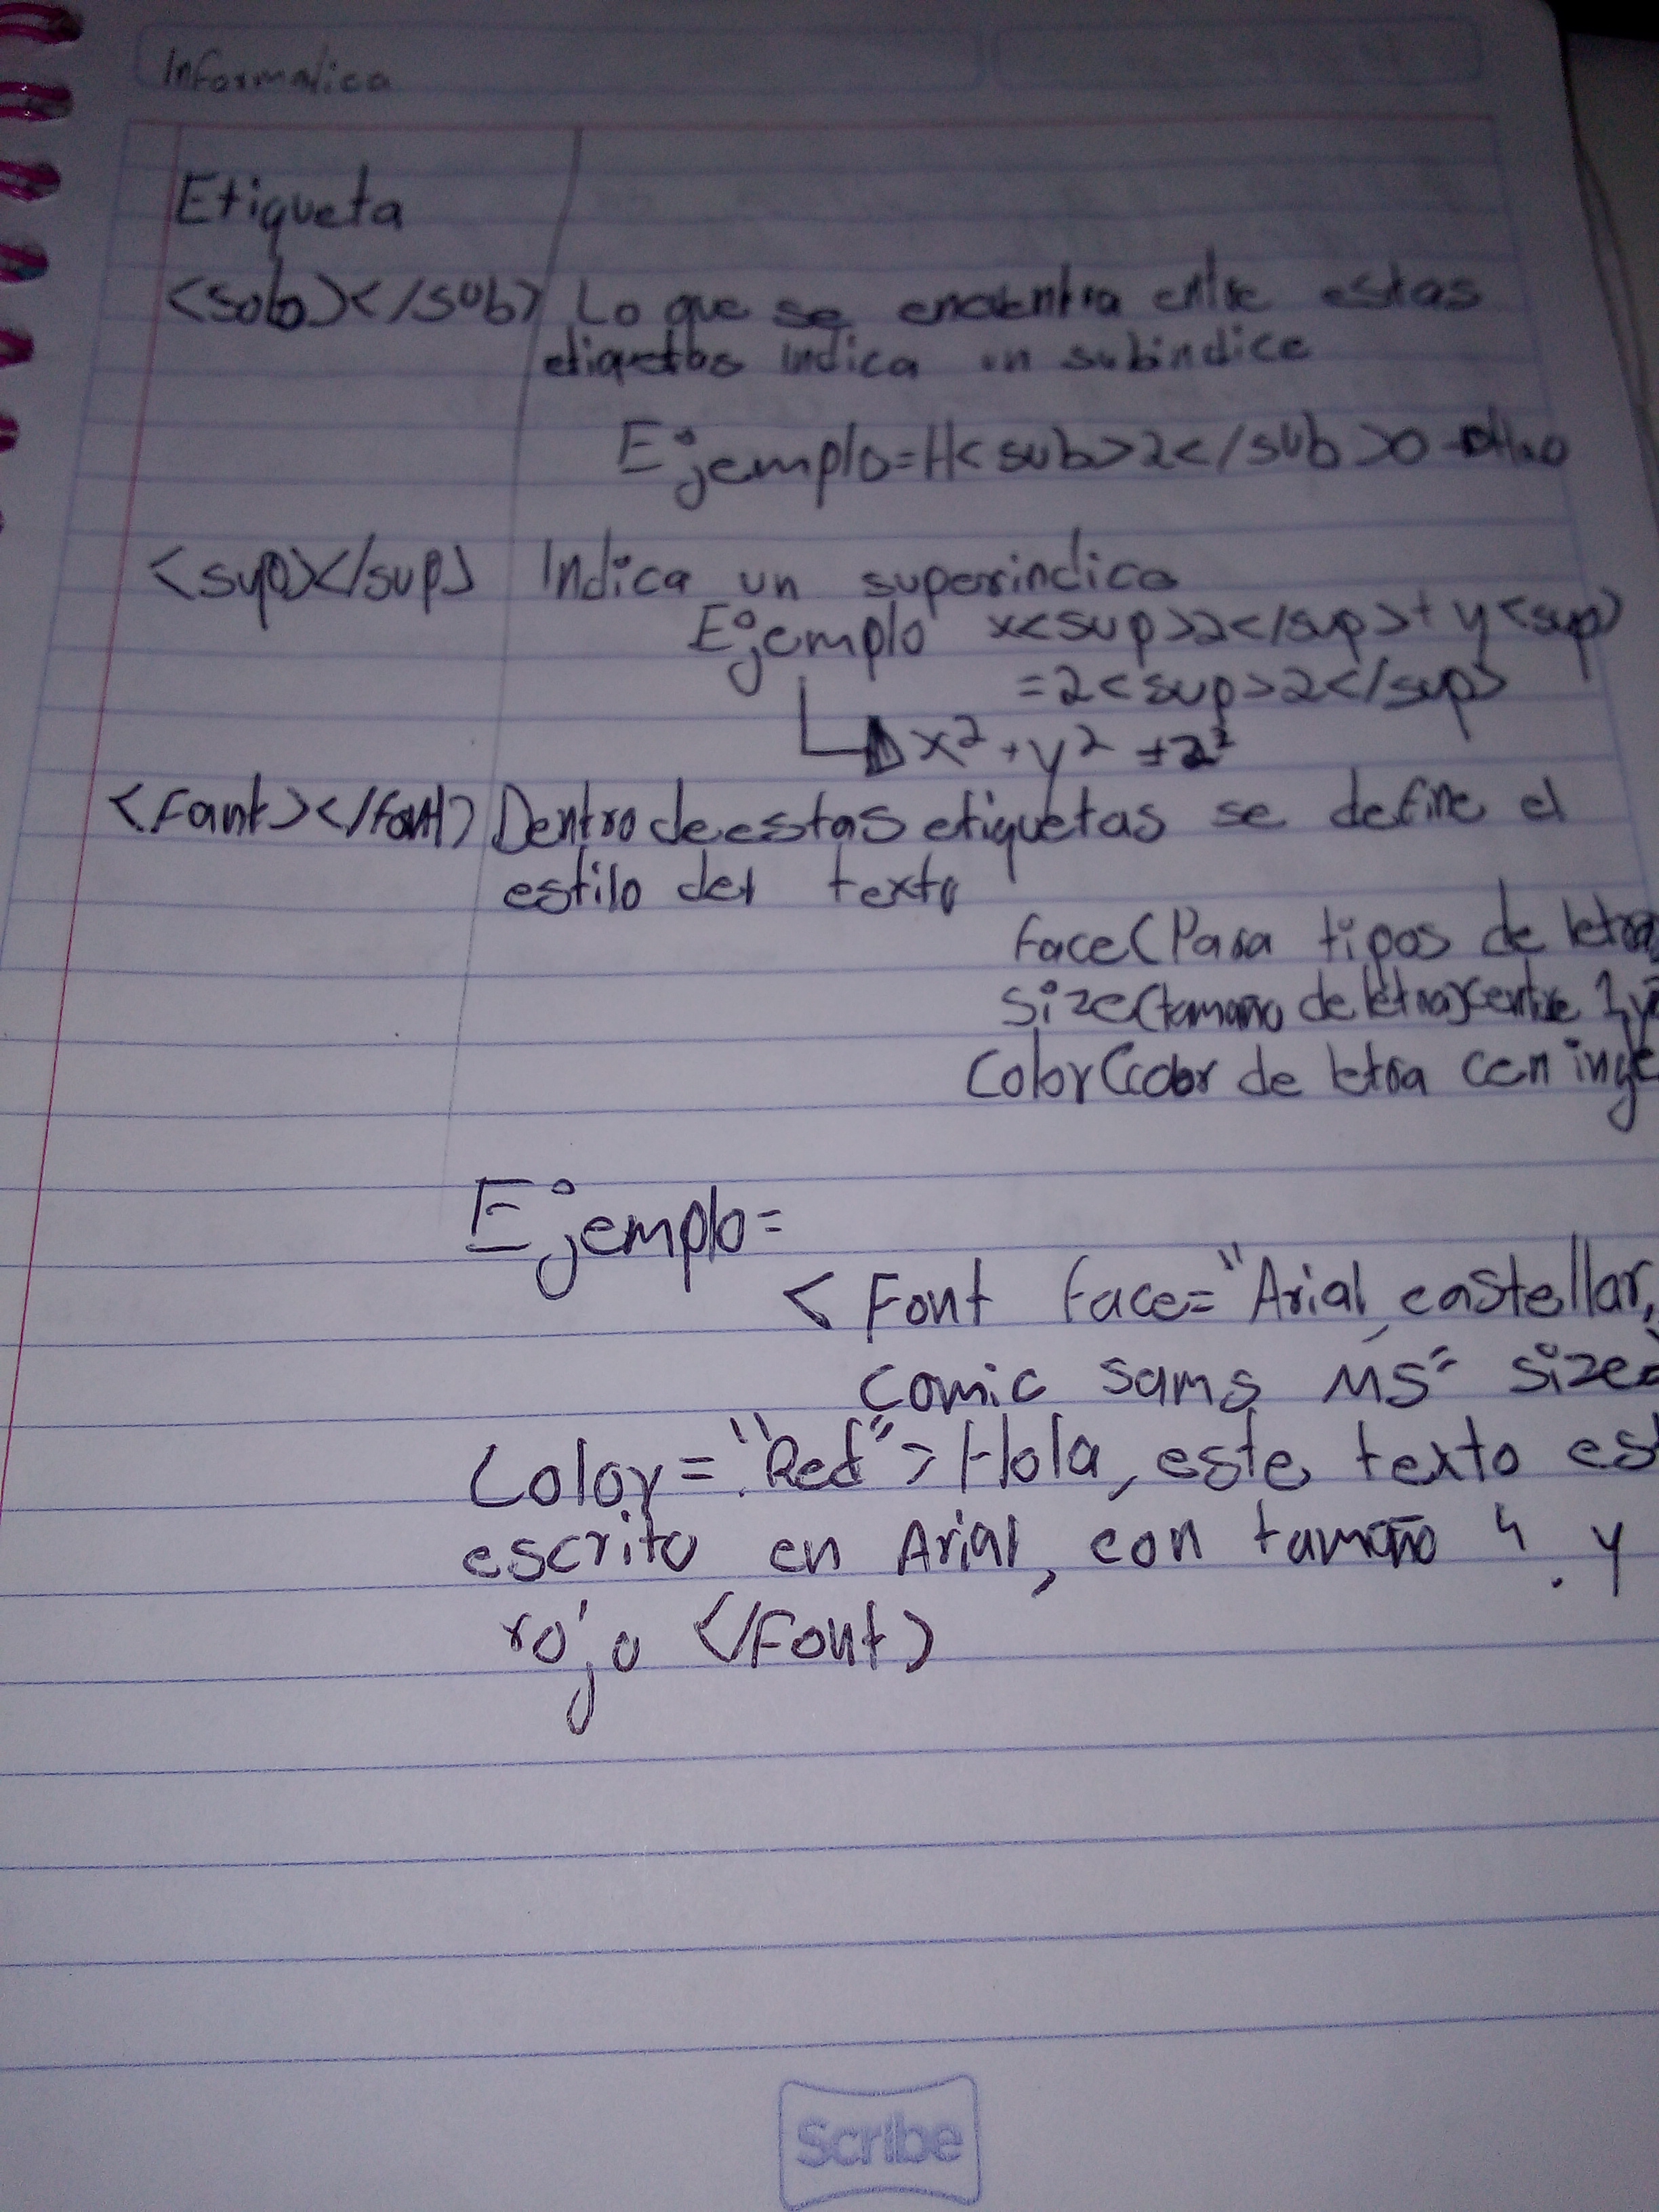 Informatica
Etiqueta
<sub></sub> Lo que se encuentra entre estas
etiquetas indica un subindice
Ejemplo=H<sub>2</sub>O
<sup></sup> Indica un superindice
Ejemplo x<sup>2</sup>+y<sup>
=2<sup>2</sup>
x² + y² = 2²
<Font></font> Dentro de estas etiquetas se define el
estilo del texto
Face(Para tipos de letra
Size(tamaño de letra)(entre 1 y
Color(color de letra
Ejemplo=
<Font face="Arial, castellar,
comic sams MS" size
Color="Red">Hola, este texto es
escrito en Arial, con tamaño 4 . y
rojo </Font>
Scribe